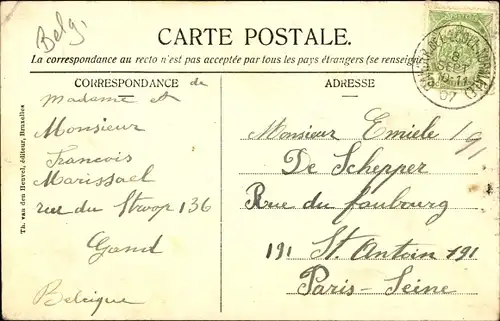 Belg.
CARTE POSTALE.
La correspondance au recto n'est pas acceptée par tous les pays étrangers (se renseigne
CORRESPONDANCE de
Madame et
Monsieur
Francois
Marissael
rue du Stroop 136
Gand
Belcique
Th. van den Heuvel, éditeur, Bruxelles
ADRESSE
Monsieur Emiele
De Schepper
Rue du faubourg
191 St. Antoin 191
Paris-Seine
8
SEPT
10-11
07